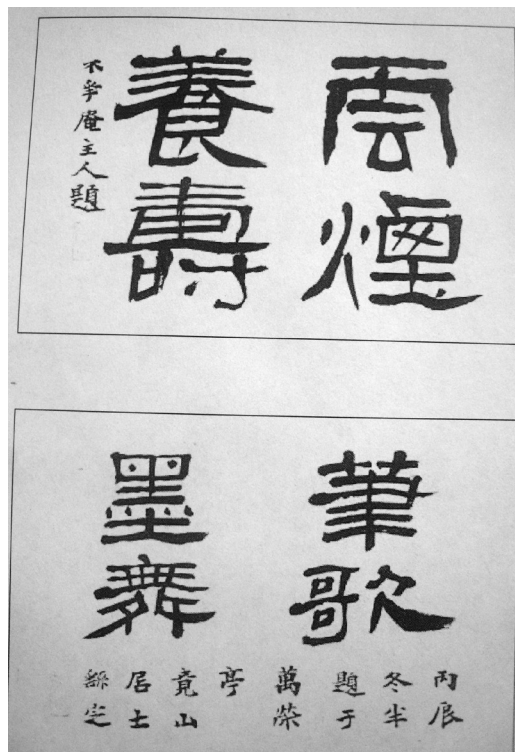 雲煙
養壽
不爭庵主人題
筆歌
墨舞
丙辰
冬半
題于
萬榮
亭
竟山
居士